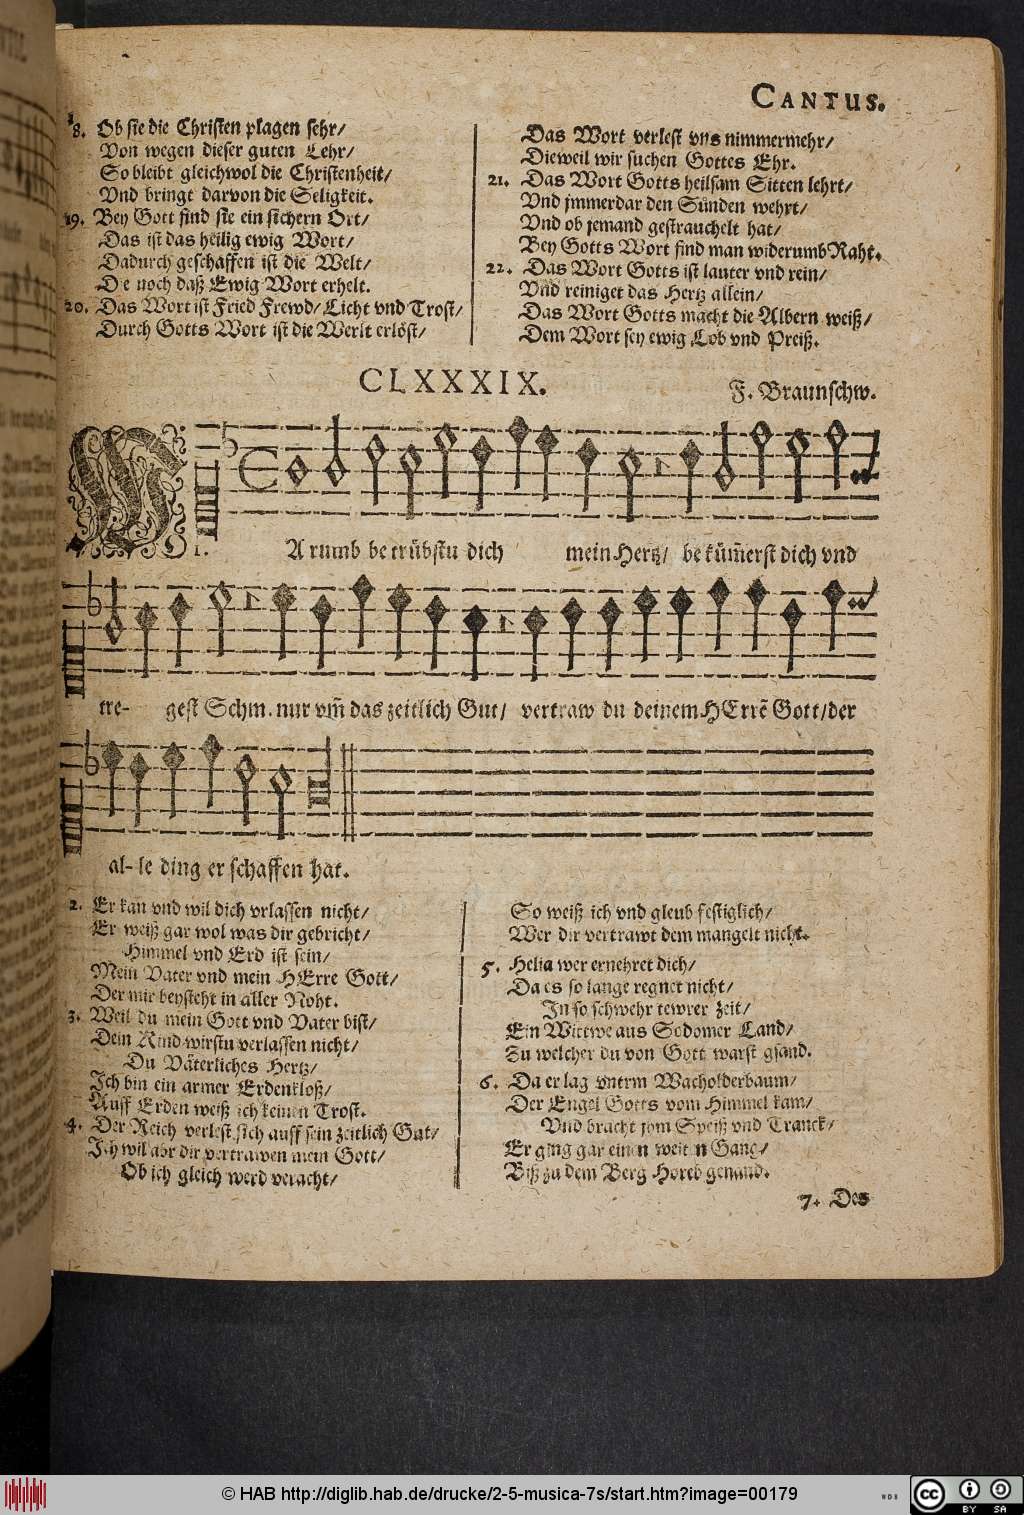 CANTUS.
18. Ob sie die Christen plagen sehr/
Von wegen dieser guten Lehr/
So bleibt gleichwol die Christenheit/
Vnd bringt darvon die Seligkeit.
19. Bey Gott sind sie ein sichern Ort/
Das ist das heilig ewig Wort/
Dadurch geschaffen ist die Welt/
Die noch daß Ewig Wort erhelt.
20. Das Wort ist Fried Frewd/ Licht vnd Trost/
Durch Gotts Wort ist die Werlt erlöst/
Das Wort verlest vns nimmermehr/
Dieweil wir suchen Gottes Ehr.
21. Das Wort Gotts heilsam Sitten lehrt/
Vnd jmmerdar den Sünden wehrt/
Vnd ob jemand gestrauchelt hat/
Bey Gotts Wort find man widerumb Raht.
22. Das Wort Gotts ist lauter vnd rein/
Vnd reiniget das Hertz allein/
Das Wort Gotts macht die Albern weiß/
Dem Wort sey ewig Lob vnd Preiß.
CLXXXIX.
F. Braunschw.
W 1. A rumb be trübstu dich mein Hertz/ be küm̃erst dich vnd
tre- gest Schm. nur vm̃ das zeitlich Gut/ vertraw du deinem HErrẽ Gott/der
al- le ding er schaffen hat.
2. Er kan vnd wil dich vrlassen nicht/
Er weiß gar wol was dir gebricht/
Himmel vnd Erd ist sein/
Mein Vater vnd mein HErre Gott/
Der mir beysteht in aller Noht.
3. Weil du mein Gott vnd Vater bist/
Dein Kind wirstu verlassen nicht/
Du Väterliches Hertz/
Ich bin ein armer Erdenkloß/
Auff Erden weiß ich keinen Trost.
4. Der Reich verlest sich auff sein zeitlich Gut/
Ich wil abr dir vertrawen mein Gott/
Ob ich gleich werd veracht/
So weiß ich vnd gleub festiglich/
Wer dir vertrawt dem mangelt nicht.
5. Helia wer ernehret dich/
Da es so lange regnet nicht/
In so schwehr tewrer zeit/
Ein Wittwe aus Sodomer Land/
Zu welcher du von Gott warst gsand.
6. Da er lag vnterm Wacholderbaum/
Der Engel Gotts vom Himmel kam/
Vnd bracht jhm Speiß vnd Tranck/
Er ging gar einen weiten Gang/
Biß zu dem Berg Horeb genand.
7. Des
© HAB http://diglib.hab.de/drucke/2-5-musica-7s/start.htm?image=00179
WDB
cc BY SA